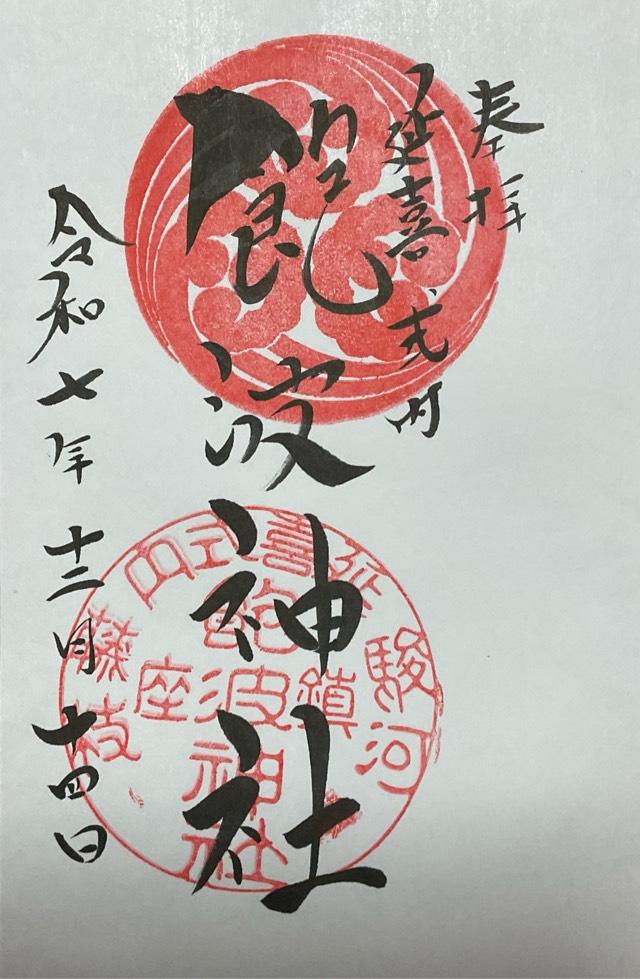 奉拝
延喜式内
飽波神社
令和七年十二月十四日
駿河
延喜式内
鎮座
飽波神社
藤枝